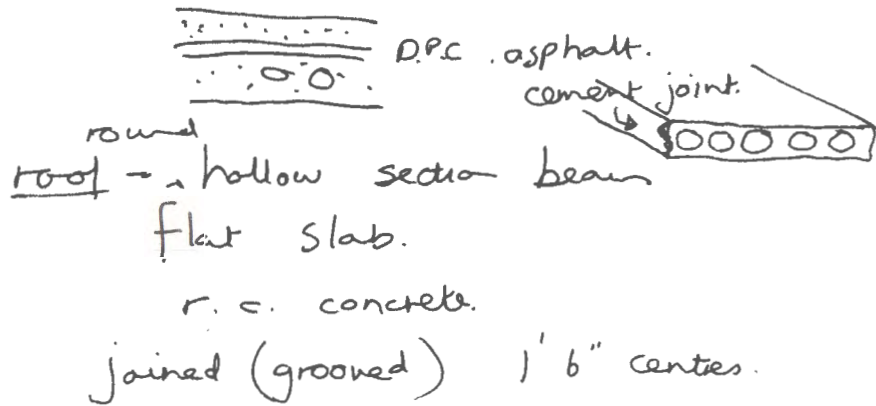 D.P.C. asphalt.
cement joint.
round
roof - hollow section beam
flat slab.
r.c. concrete.
joined (grooved) 1' 6" centres.